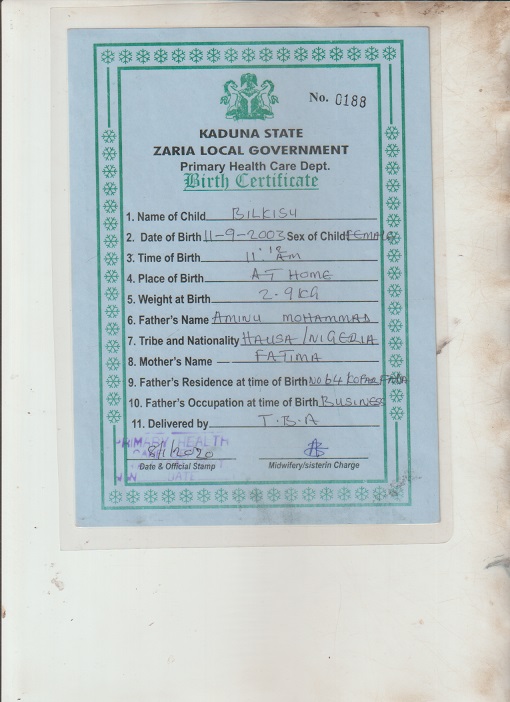 No. 0188
KADUNA STATE
ZARIA LOCAL GOVERNMENT
Primary Health Care Dept.
Birth Certificate
1. Name of Child BILKISU
2. Date of Birth 11-9-2003 Sex of Child FEMALE
3. Time of Birth 11:12 AM
4. Place of Birth AT HOME
5. Weight at Birth 2.9KG
6. Father's Name AMINU MOHAMMAD
7. Tribe and Nationality HAUSA/NIGERIA
8. Mother's Name FATIMA
9. Father's Residence at time of Birth NO 64 KOFAR FADA
10. Father's Occupation at time of Birth BUSINESS
11. Delivered by T.B.A
PRIMARY HEALTH
8/1/2020
Date & Official Stamp Midwifery/sisterin Charge
DATE